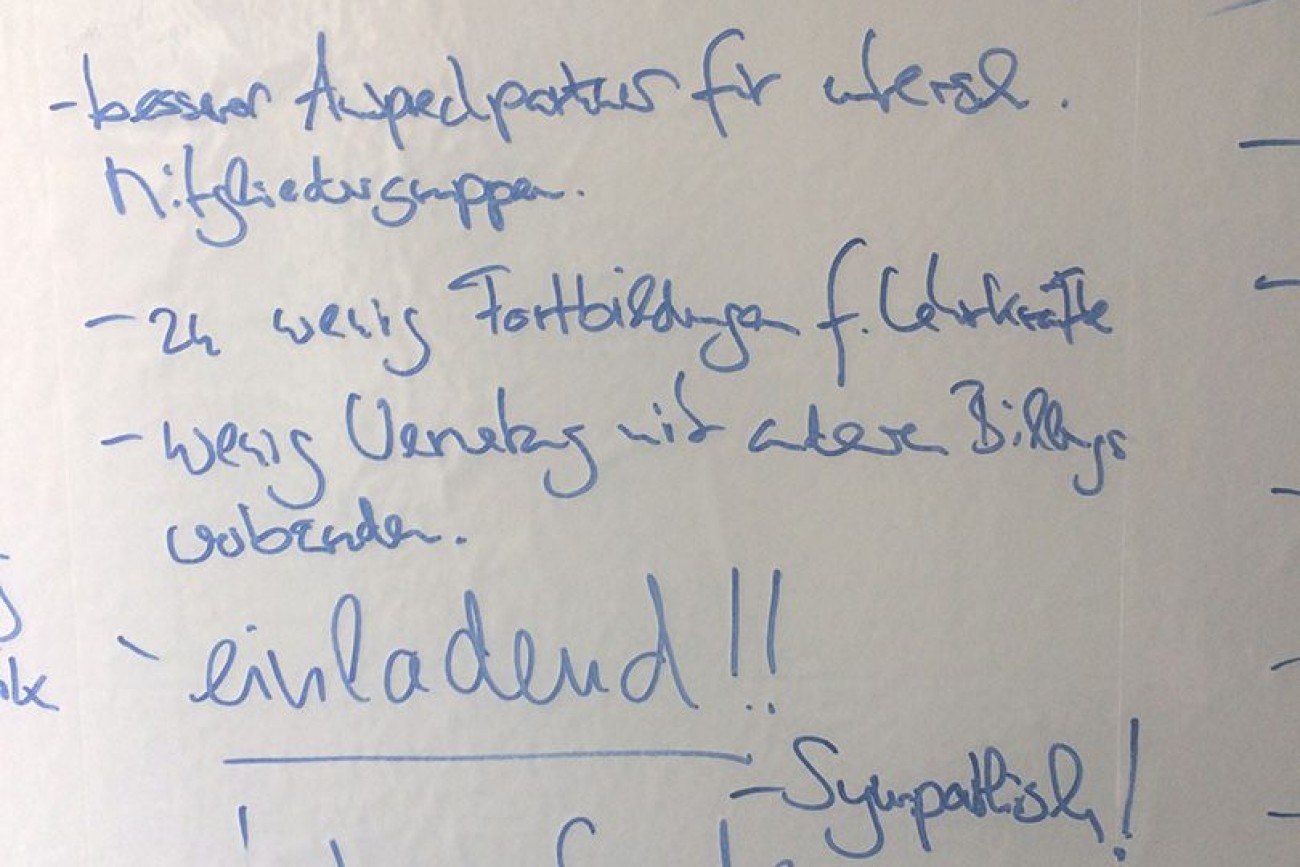 - besserer Ansprechpartner für untersch.
Mitgliedergruppen.
- zu wenig Fortbildungen f. Lehrkräfte
- wenig Vernetzung mit anderen Bildungs
verbänden.
- einladend!!
- Sympathisch!